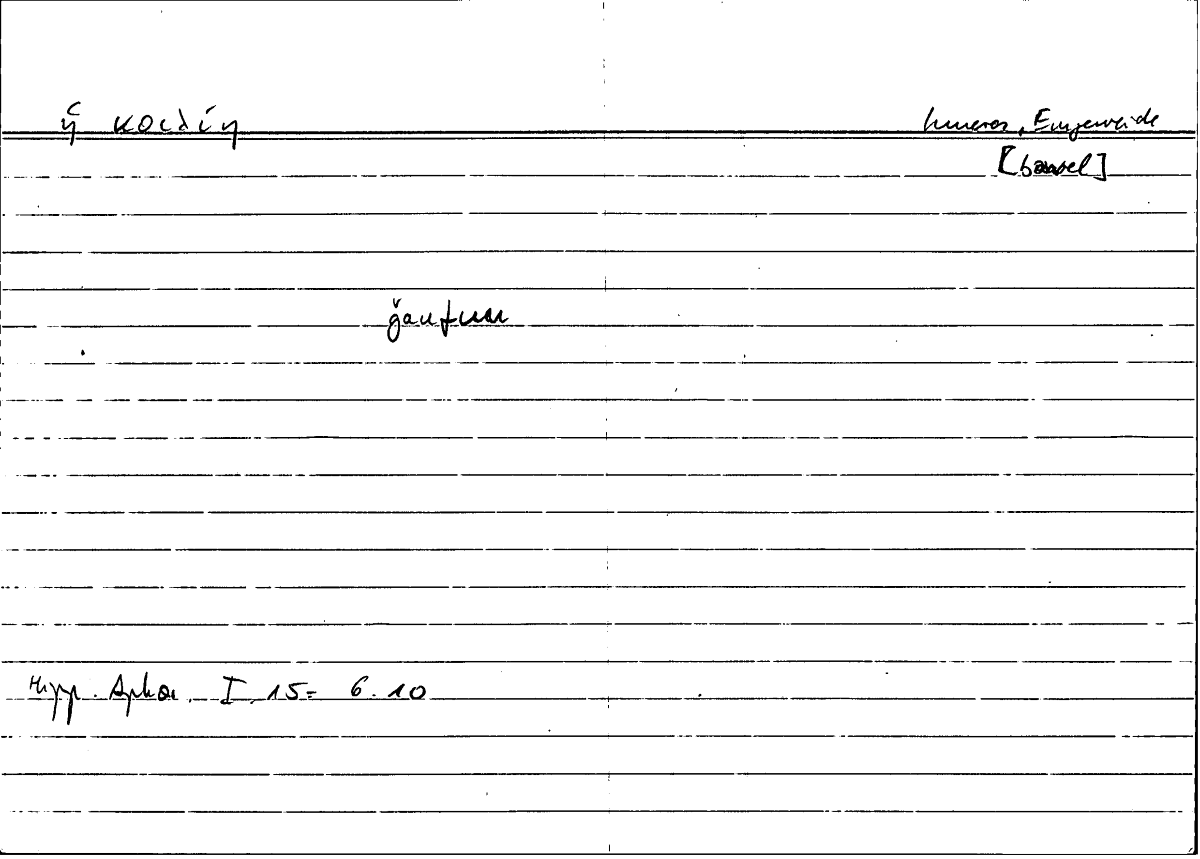 ἡ κοιλίη Inneres, Eingeweide
[bowel]
ǧaufun
Hipp. Aphor. I 15 = 6.10